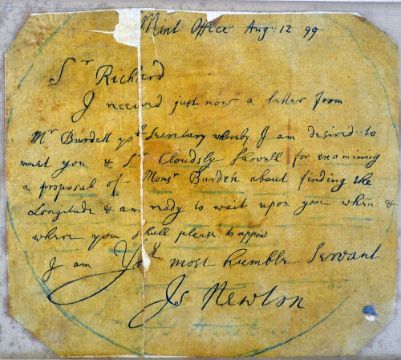 Mint Office Aug. 12 99
Sr Richard
I received just now a letter from
Mr Burdett yor Secretary whereby I am desired to
meet you & Sr Cloudsly Shovell for examining
a proposal of Monsr Burden about finding the
Longitude & am ready to wait upon you when &
where you shall please to appoint
I am Yor most humble Servant
Is Newton